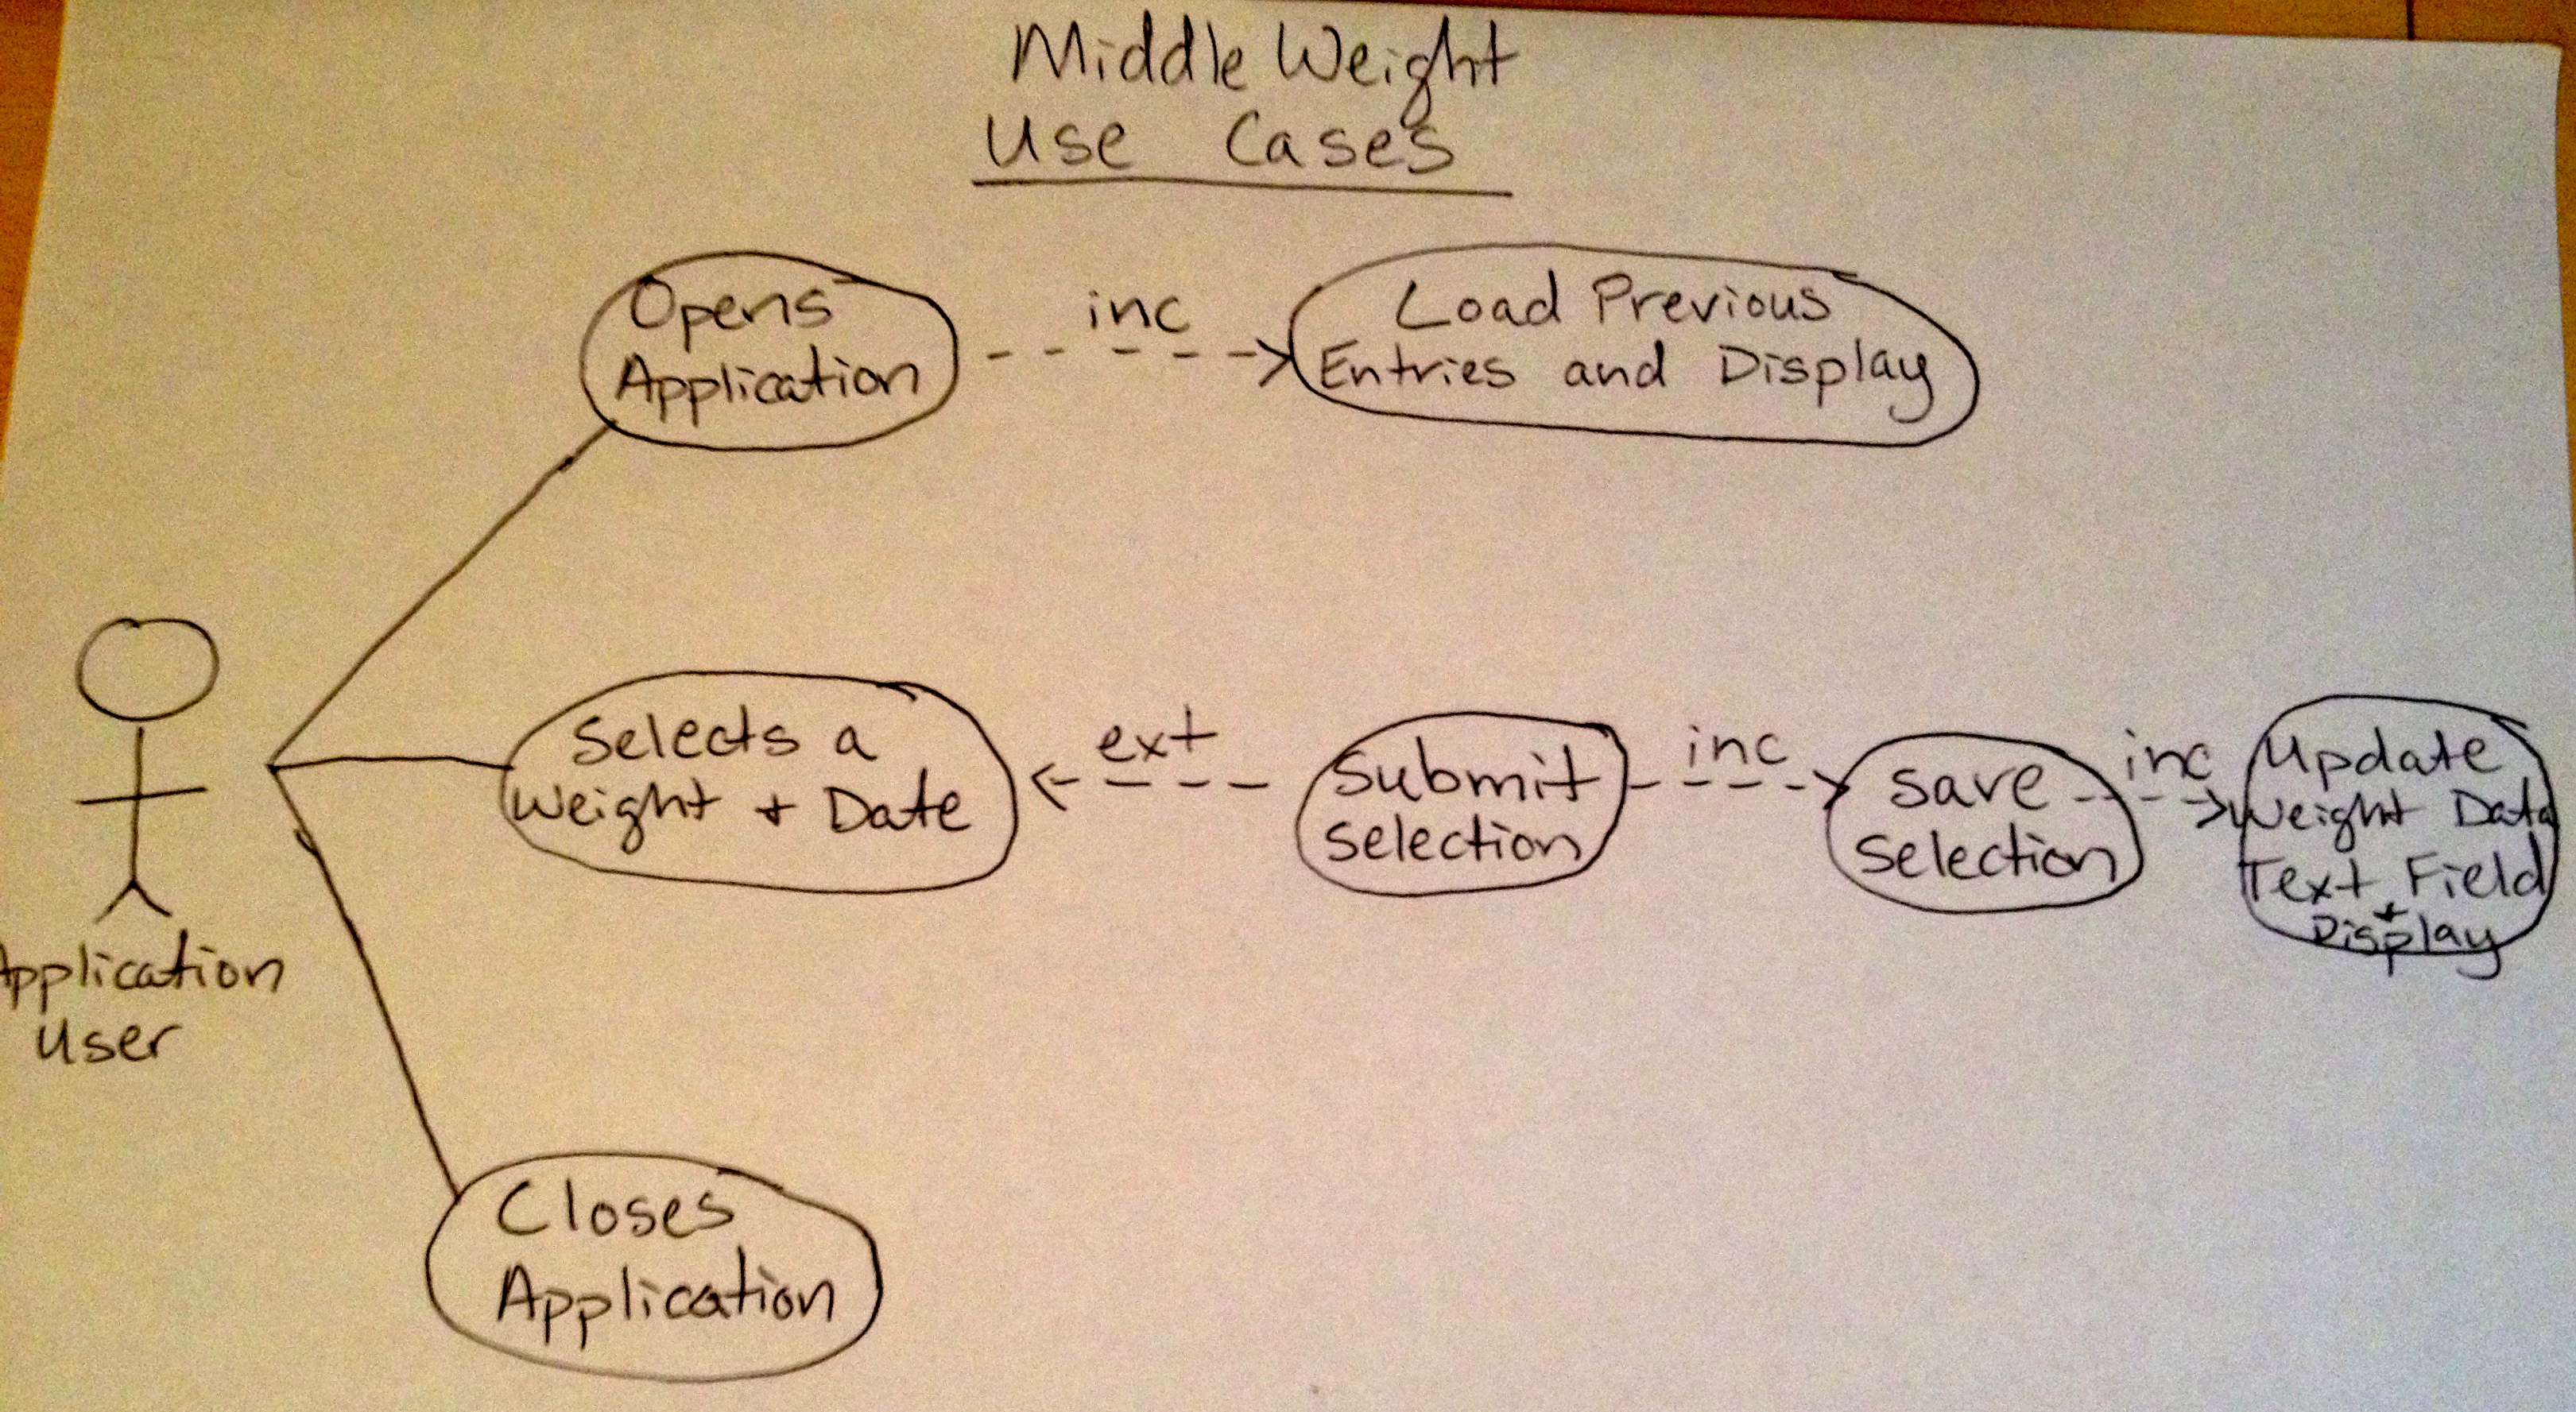 Middle Weight
Use Cases
Opens
Application
inc
Load Previous
Entries and Display
Selects a
Weight + Date
ext
Submit
Selection
inc
Save
Selection
inc
Update
Weight Data
Text Field
+
Display
Application
User
Closes
Application